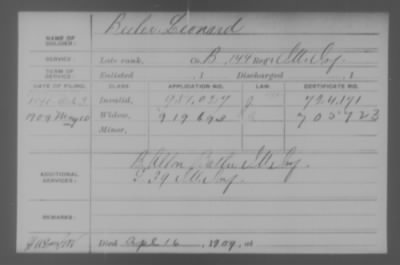 NAME OF SOLDIER: Leonard
SERVICE: Late rank, Co. B, 144 Reg't Ill. Inf.
TERM OF SERVICE: Enlisted , 1 Discharged , 1
DATE OF FILING. CLASS APPLICATION NO. LAW CERTIFICATE NO.
Invalid, 937,027 724,171
1909 May 10 Widow, 919692 705723
Minor,
ADDITIONAL SERVICES: B Alton Ill. Inf.
39 Ill. Inf.
REMARKS:
Died Apl 16, 1909, at